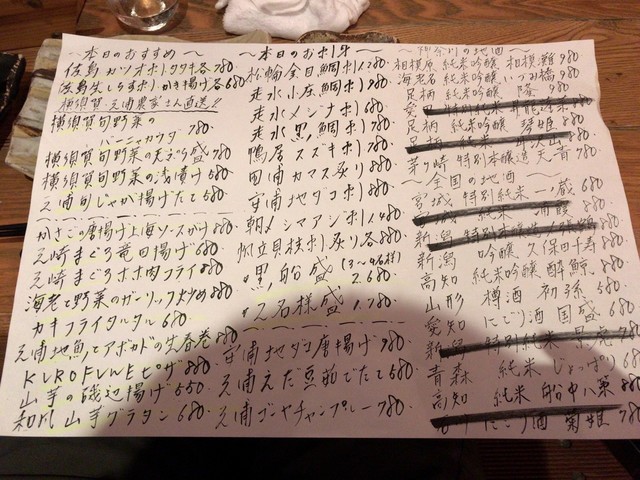 〜本日のおすすめ〜
佐島 カツオ刺タタキ各780
佐島生しらす刺・かき揚げ各680
横須賀・三浦農家さん直送!!
横須賀旬野菜の
バーニャカウダ 780.
横須賀旬野菜の天ぷら盛 780
横須賀旬野菜の浅漬け 580
三浦旬じゃが揚げたて 580
かさごの唐揚げ上海ソースがけ 880
三崎まぐろ竜田揚げ 680
三崎まぐろホホ肉フライ 780
海老と野菜のガーリック炒め 880
カキフライタルタル 680
三浦地魚とアボカドの生春巻 880
KUROFUNEピザ 880
山芋の磯辺揚げ 550
和風山芋グラタン 680
〜本日のお刺身〜
松輪金目鯛刺 1.780
走水 刺 780
走水メジナ刺 680
走水黒鯛刺 780
鴨居スズキ刺 780
カマス炙り 880
地ダコ刺 880
朝〆シマアジ刺 1.480
帆立貝柱刺・炙り各 880
黒船盛(3〜4名様) 2.680
二名様盛 1.780
地ダコ唐揚げ 780
三浦えだ豆茹でたて 580
三浦ゴーヤチャンプルー 780
〜神奈川の地酒〜
相模原 純米吟醸 相模灘 780
海老名 純米吟醸 いづみ橋 780
足柄 純米吟醸 隆 980
足柄 純米吟醸 琴姫 880
茅ヶ崎 特別本醸造 天青 780
〜全国の地酒〜
宮城 特別純米 一ノ蔵 680
新潟 吟醸 久保田千寿 680
高知 純米吟醸 酔鯨 880
山形 樽酒 初孫 580
愛知 にごり酒 国盛 680
青森 純米 じょっぱり 680
高知 純米 船中八策 880